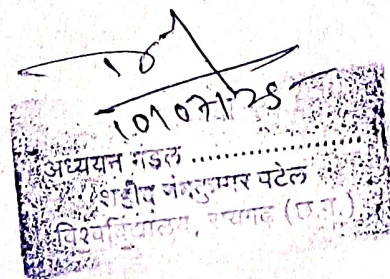 10/07/25
अध्ययन मंडल ..................
शहीद नंदकुमार पटेल
विश्वविद्यालय, रायगढ़ (छ.ग.)